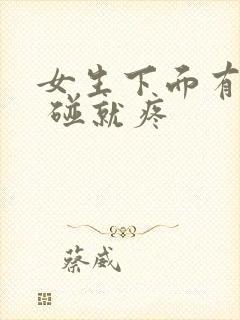 女生下而有
碰就疼
蔡威